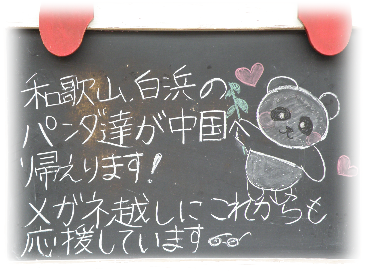 和歌山、白浜の
パンダ達が中国へ
帰えります!
メガネ越しにこれからも
応援しています